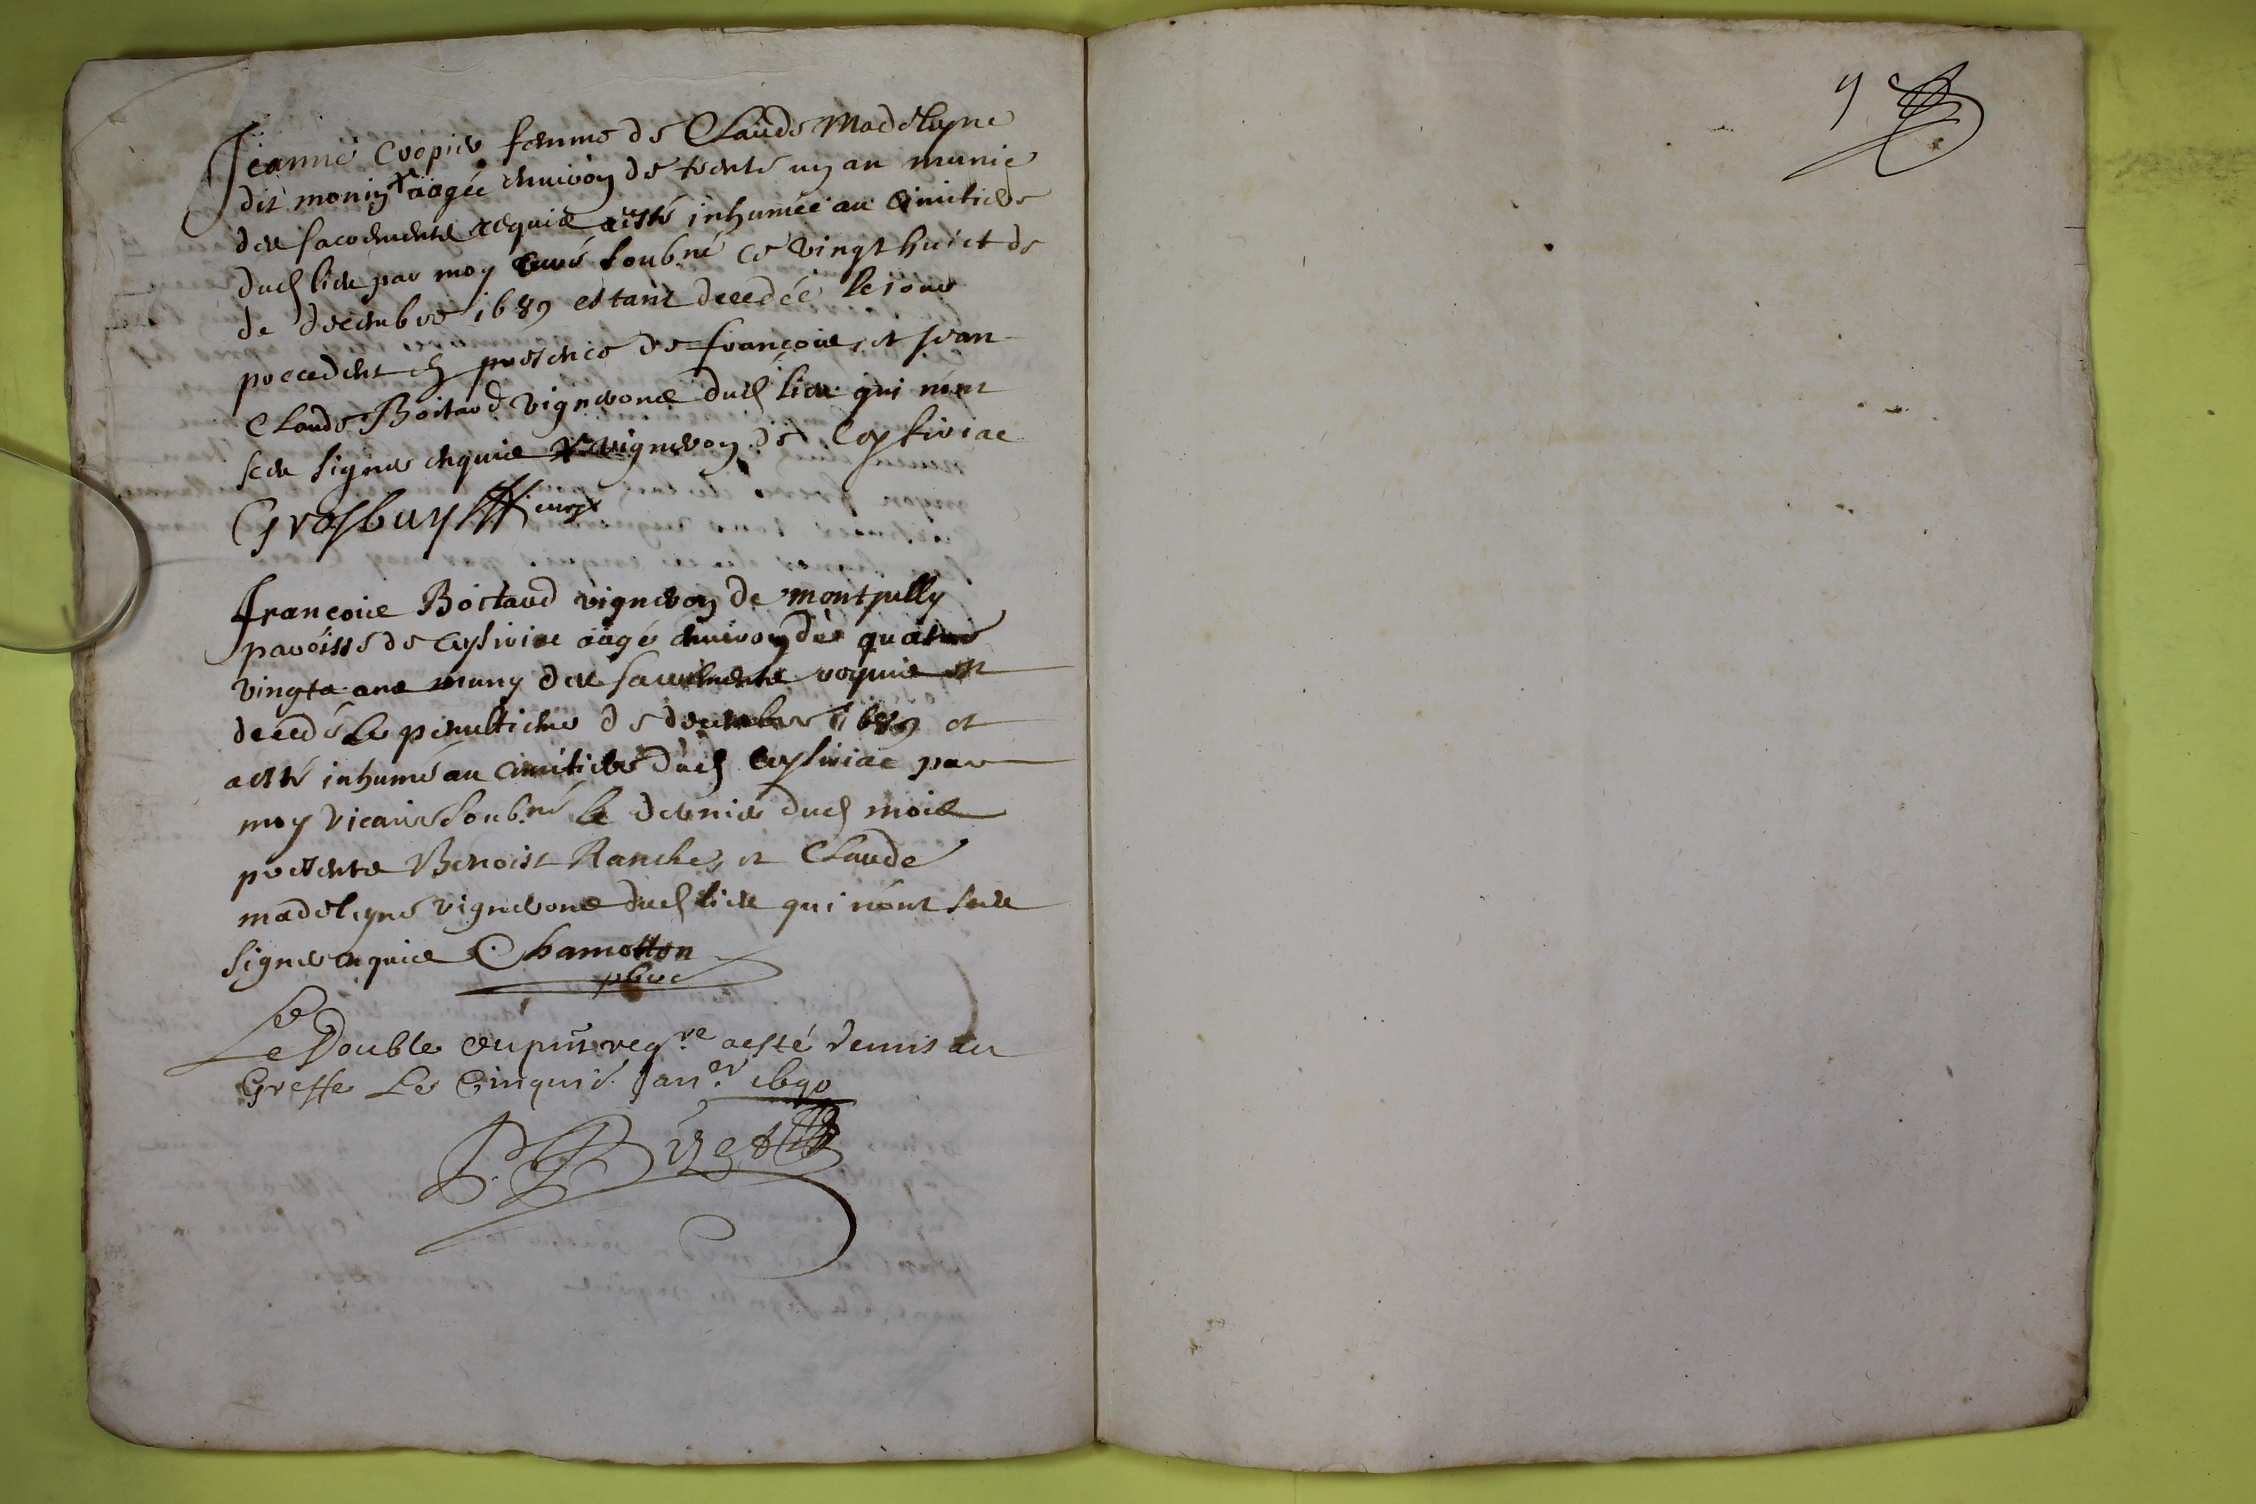 Jeanne Cropier femme de Claude Madeleyne
dit monin + aagée environ de trente un an munie
des sacrements requis a esté inhumée au cimitiere
dud lieu par moy curé soubné ce vingt huict de
de decembre 1689 estant decedée le jour
precedent en presence de françois, et Jean
Claude Boitard vignerons dud lieu qui nont
sceu signer enquis + vigneron de Ceysiriac
Grosbuy curé
françois Boitard vigneron de montjully
paroisse de ceysiriac aagé environ de quatre
vingts ans muny des sacrements requis est
decedé le penultieme de decembre 1689 et
a esté inhumé au cimitiere dud Ceysiriac par
moy vicaire soubné le dernier dud mois
presents Benoist et Claude
madeleyne vignerons dud lieu qui nont sceu
signer enquis Chamotton
pbre
Le Double du pnt regre a esté remis au
Greffe Le Cinquié. Janer 1690
9